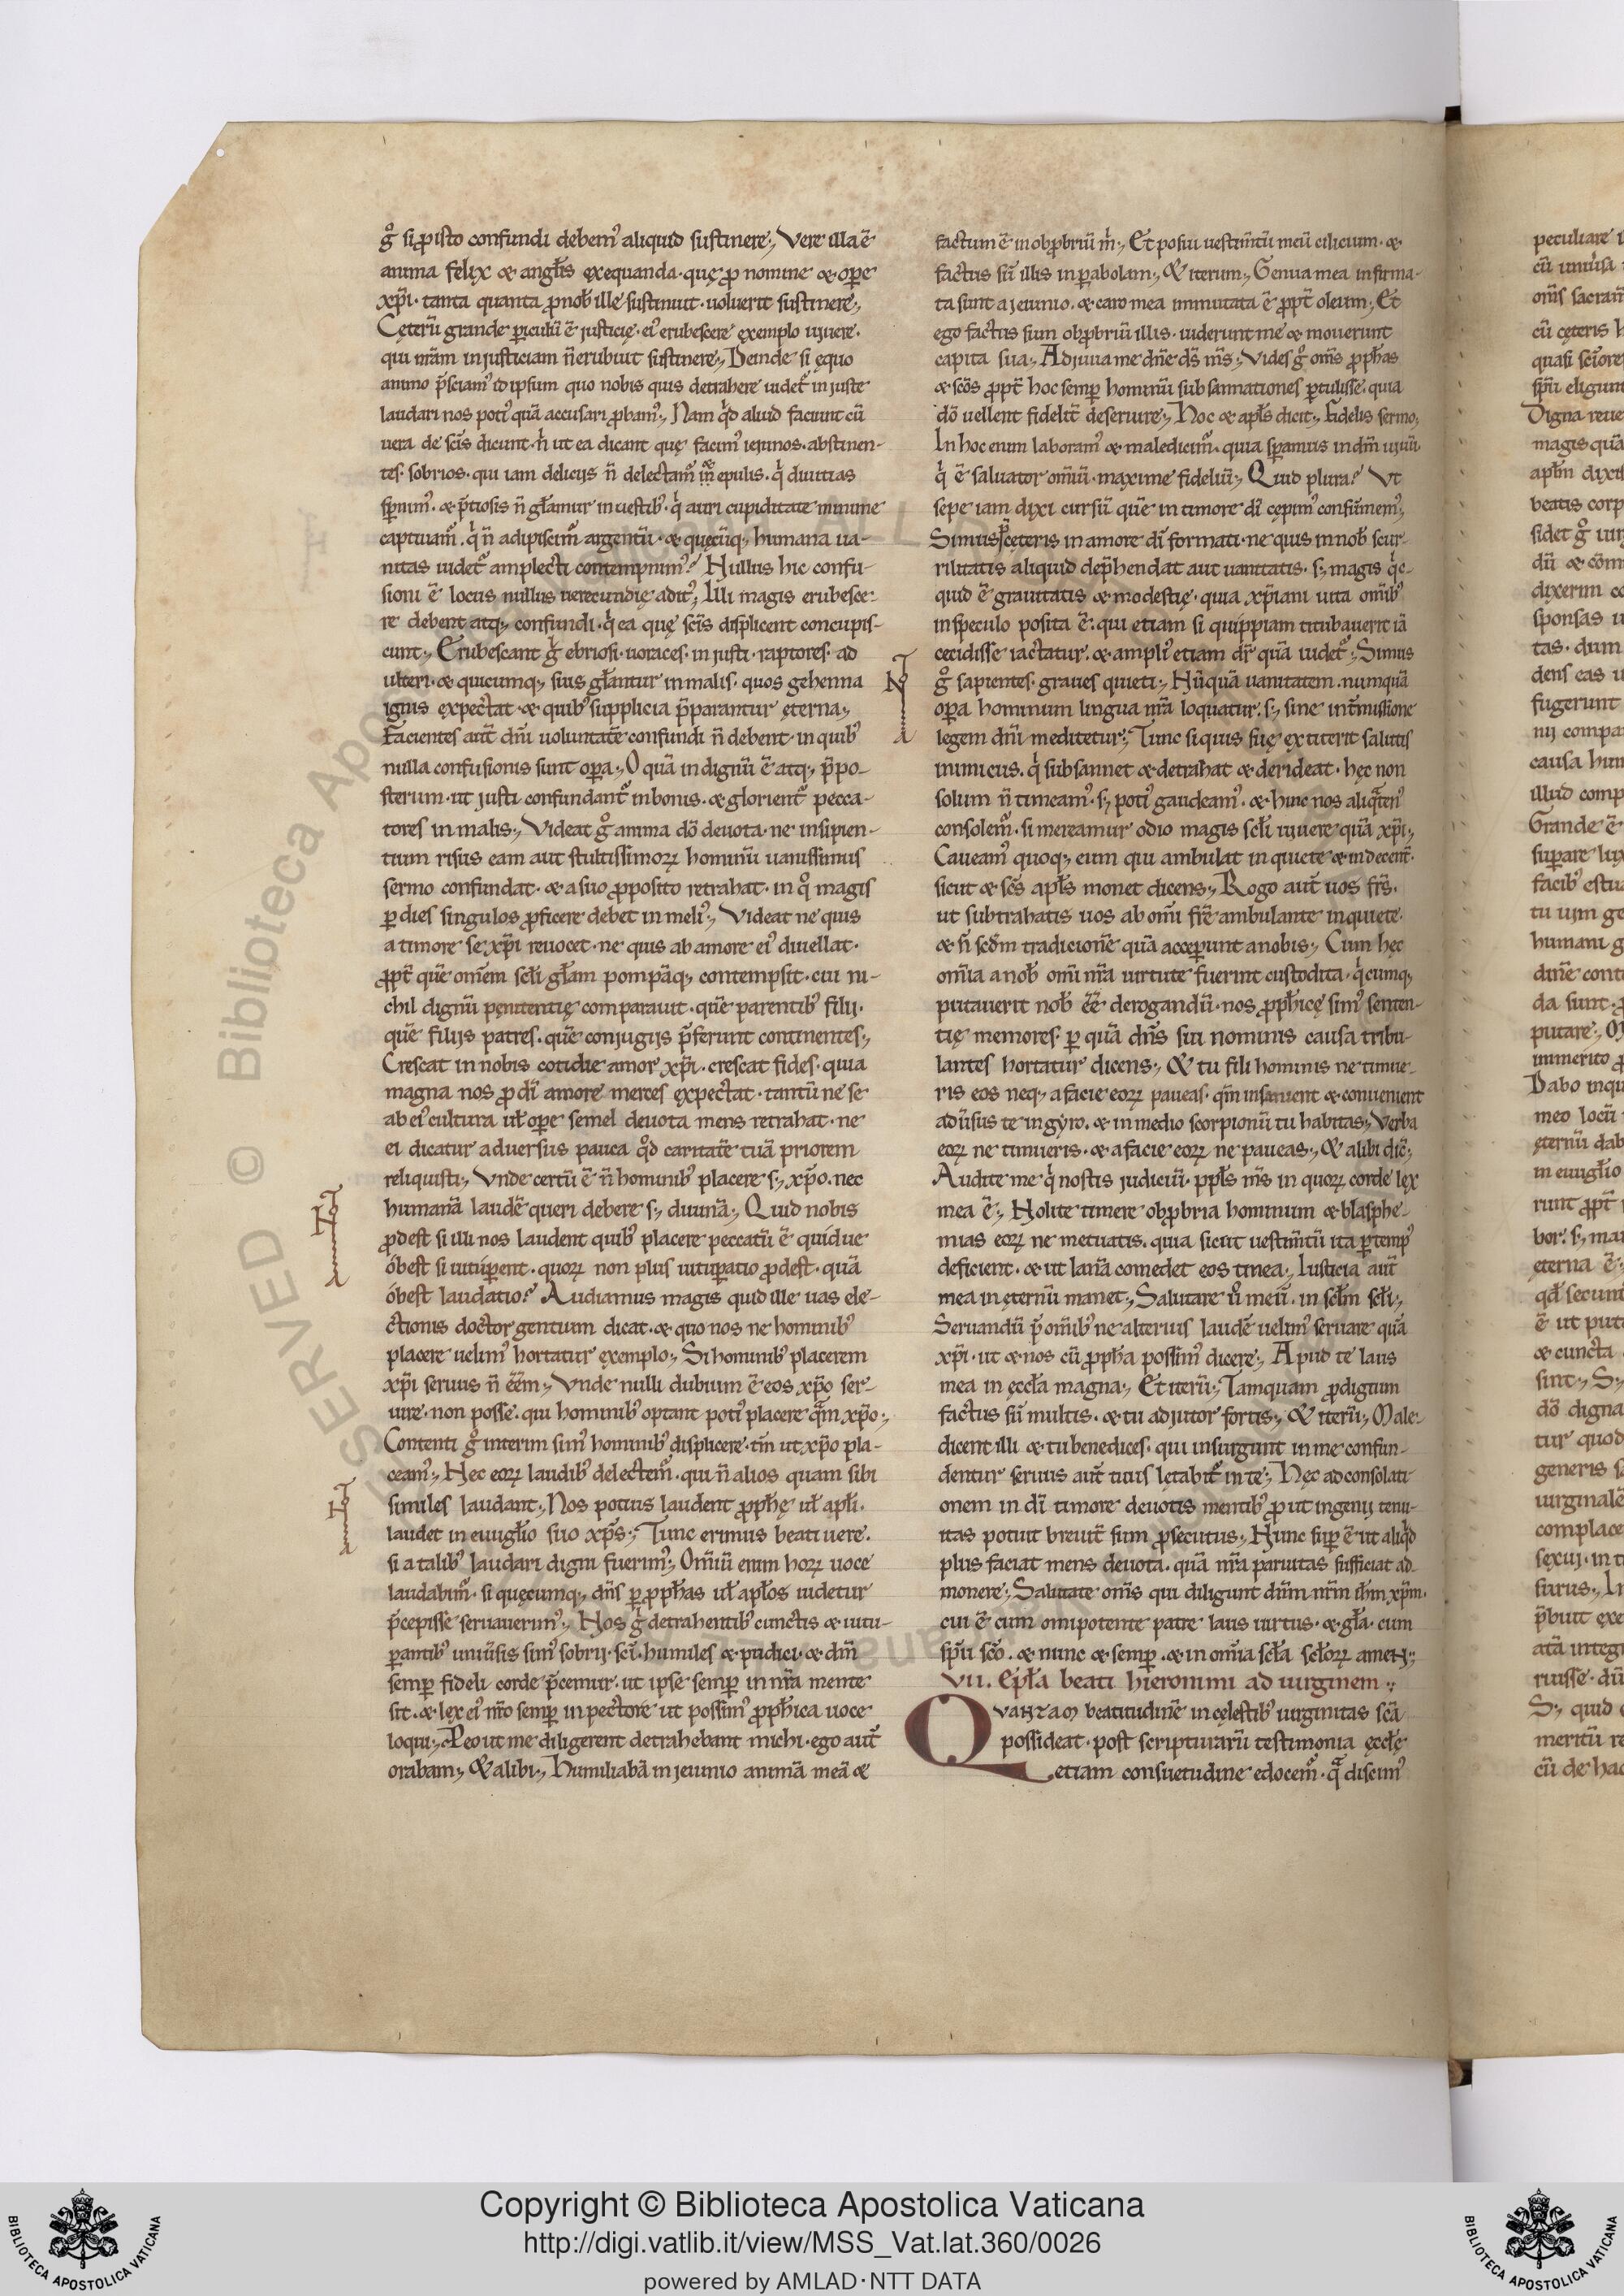 g̊ si ꝓ isto confundi debem᷒ aliquid sustinere; Vere illa ē
anima felix & angƚis exequanda· quę ꝓ nomine & oꝑe
xp̄i· tanta quanta ꝓ nob̄ ille sustinuit· uoluerit sustinere;
Cęterū grande ꝑiculū ē justicię· ei᷒ erubescere exemplo uiuere·
qui nr̄am injusticiam n̄ erubuit sustinere; Deinde si ęquo
animo p̄sciam᷒ id ipsum quo nobis quis detrahere uidet᷑ injuste
laudari nos poti᷒ quā accusari ꝓbam᷒; Nam qd̓ aliud faciunt cū
uera de sc̄is dicunt· n̓ ut ea dicant quę facim᷒ ieiunos· abstinen-
tes· sobrios· qui iam delicijs n̄ delectam᷑ epulis· q̓ diuitias
sꝑnim᷒· & p̄tiosis n̄ gƚamur in uestib᷒· q̓ auri cupiditate minime
captiuam᷑· q̓ n̄ adipiscim᷑ argentū· & quęcūq; humana ua-
nitas uidet᷑ amplecti contempnim᷒? Nullus hic confu-
sioni ē locus nullus uerecundię adit᷒; Illi magis erubesce-
re debent atq; confundi· q̓ ea quę sc̄is displicent concupis-
cunt; Erubescant g̊ ebriosi· uoraces· injusti· raptores· ad
ulteri· & quicumq; suis gƚantur in malis· quos gehenna
ignis expectat· & quib᷒ supplicia p̄parantur ęterna;
Facientes aut̄ dn̄i uoluntatē confundi n̄ debent· in quib᷒
nulla confusionis sunt oꝑa; O quā indignū ē atq; p̄po-
sterum· ut justi confundant᷑ in bonis· & glorient᷑ pecca-
tores in malis; Videat g̊ anima dō deuota· ne insipien-
tium risus eam aut stultissimoꝝ hominū uanissimus
sermo confundat· & a suo ꝓposito retrahat· in q̊ magis
ꝑ dies singulos ꝓficere debet in meli᷒; Videat ne quis
a timore se xp̄i reuocet· ne quis ab amore ei᷒ diuellat·
ꝓpt̄ quē omēm secƚi gƚam pompāq; contempsit· cui ni-
chil dignū penitentię comparauit· quē parentib᷒ filij·
quē filijs patres· quē conjugijs p̄ferunt continentes;
Crescat in nobis cotidie amor xp̄i· crescat fides· quia
magna nos ꝓ dī amore merces expectat· tantū ne se
ab ei᷒ cultura uƚ oꝑe semel deuota mens retrahat· ne
ei dicatur aduersus pauca qd̓ caritatē tuā priorem
reliquisti; Vnde certū ē n̄ hominib᷒ placere s; xp̄o· nec
humanā laudē queri debere s; diuinā; Quid nobis
ꝓdest si illi nos laudent quib᷒ placere peccatū ē quidue
obest si uituꝑent· quoꝝ non plus uituꝑatio ꝓdest· quā
obest laudatio? Audiamus magis quid ille uas ele-
ctionis doctor gentium dicat· & quo nos ne hominib᷒
placere uelim᷒ hortatur exemplo; Si hominib᷒ placerem
xp̄i seruus n̄ eēm; Vnde nulli dubium ē eos xp̄o ser-
uire· non posse· qui hominib᷒ optant poti᷒ placere qm̄ xp̄o;
Contenti g̊ interim sim᷒ hominib᷒ displicere· tm̄ ut xp̄o pla-
ceam᷒; Nec eoꝝ laudib᷒ delectem᷑· qui n̄ alios quam sibi
similes laudant; Nos potius laudent ꝓph̄ę uƚ apƚi·
laudet in euuangƚio suo xp̄s; Tunc erimus beati uere·
si a talib᷒ laudari digni fuerim᷒; Omīū enim hoꝝ uoce
laudabim᷑· si quęcumq; dn̄s ꝑ ꝓph̄as uƚ apƚos uidetur
p̄cepisse seruauerim᷒; Nos g̊ detrahentib᷒ cunctis & uitu-
ꝑantib᷒ uniūsis sim᷒ sobrij· sc̄i· humiles & pudici· & dn̄m
semꝑ fideli corde p̄cemur· ut ipse semꝑ in nr̄a mente
sit· & lex ei᷒ nr̄o semꝑ in pectore ut possim᷒ ꝓph̄ica uoce
loqui; Pro eo ut me diligerent detrahebant michi· ego aut̄
orabam; & alibi; Humiliabā in jeiunio animā meā &
factum ē in obꝓbriū m̓; Et posui uestim̄tū meū cilicium· &
factus sū illis in ꝑabolam; & iterum; Genua mea infirma-
ta sunt a jeiunio· & caro mea immutata ē ꝓpt̄ oleum; Et
ego factus sum obꝓbriū illis· uiderunt me & mouerunt
capita sua; Adjuua me dn̄e ds̄ ms̄; Vides g̊ om̄s ꝓph̄as
& sc̄os ꝓpt̄ hoc semꝑ hominū subsannationes ꝑtulisse· quia
dō uellent fidelit̄ deseruire; Hoc & apƚs dicit; Fidelis sermo;
In hoc enim laboram᷒ & maledicim᷑· quia sꝑamus in dm̄ uiuū
q̓ ē saluator omīū· maxime fideliū; Quid plura? Vt
sepe iam dixi cursū quē in timore dī cepim᷒ consūmem᷒;
Simus p̄ ceteris in amore dī formati· ne quis in nob̄ scur-
rilitatis aliquid dep̄hendat aut uanitatis· s; magis q̓c-
quid ē grauitatis & modestię· quia xp̄iani uita omīb᷒
in speculo posita ē· qui etiam si quippiam titubauerit iā
cecidisse iactatur· & ampli᷒ etiam dr̄ quā uidet᷑; Simus
g̊ sapientes· graues quieti; Nūquā uanitatem· numquā
oꝑa hominum lingua nr̄a loquatur· s; sine int̄missione
legem dn̄i meditetur; Tunc si quis suę extiterit salutis
inimicus· q̓ subsannet & detrahat & derideat· hęc non
solum n̄ timeam᷒· s; poti᷒ gaudeam᷒· & hinc nos aliqͣten᷒
consolem᷑· si mereamur odio magis secƚi uiuere quā xp̄i;
Caueam᷒ quoq; eum qui ambulat inquiete & indecent̄·
sicut & sc̄s apƚs monet dicens; Rogo aut̄ uos frs̄·
ut subtrahatis uos ab omī fr̄e ambulante inquiete·
& n̄ scdm̄ tradicionē quā acceꝑunt a nobis; Cum hęc
omīa a nob̄ omī nr̄a uirtute fuerint custodita· q̓cumq;
putauerit nob̄ eē derogandū· nos ꝓph̄icę sim᷒ senten-
tię memores· ꝑ quā dn̄s sui nominis causa tribu-
lantes hortatur dicens; & tu fili hominis ne timue-
ris eos neq; a facie eoꝝ paueas· qm̄ insanient & conuenient
adūsus te in gyro· & in medio scorpionū tu habitas; Verba
eoꝝ ne timueris· & a facie eoꝝ ne paueas; & alibi dic̄;
Audite me q̓ nostis judiciū· ppƚs ms̄ in quoꝝ corde lex
mea ē; Nolite timere obꝓbria hominum & blasphe-
mias eoꝝ ne metuatis· quia sicut uestim̄tū ita ꝑ temp᷒
deficient· & ut lanā comedet eos tinea; Iusticia aut̄
mea in ęternū manet; Salutare ů meū· in secƚm secƚi;
Seruandū p̄ omīb᷒ ne alterius laudē uelim᷒ seruare quā
xp̄i· ut & nos cū ꝓph̄a possim᷒ dicere; Apud te laus
mea in eccƚa magna; Et iterū; Tamquam ꝓdigium
factus sū multis· & tu adjutor fortis; & iterū; Male-
dicent illi & tu benedices· qui insurgunt in me confun-
dentur seruus aut̄ tuus lętabit᷑ in te; Hęc ad consolati-
onem in dī timore deuotis mentib᷒ ꝓ ut ingenij tenu-
itas potuit breuit̄ sum ꝓsecutus; Nunc suꝑ ē ut aliqd̓
plus faciat mens deuota· quā nr̄a paruitas sufficiat ad
monere; Salutate om̄s qui diligunt dn̄m nr̄m ih̄m xp̄m·
cui ē cum omnipotente patre laus uirtus· & gƚa· cum
sp̄u sc̄o· & nunc & semꝑ· & in omīa secƚa secƚoꝝ ameN;
VII. Epƚa beati hieronimi ad uirginem;
QVANTAM beatitudinē in cęlestib᷒ uirginitas sc̄a
possideat· post scripturarū testimonia eccƚę
etiam consuetudine edocem᷑· qͣ discim᷒
Copyright © Biblioteca Apostolica Vaticana
http://digi.vatlib.it/view/MSS_Vat.lat.360/0026
powered by AMLAD·NTT DATA
BIBLIOTECA APOSTOLICA VATICANA
BIBLIOTECA APOSTOLICA VATICANA